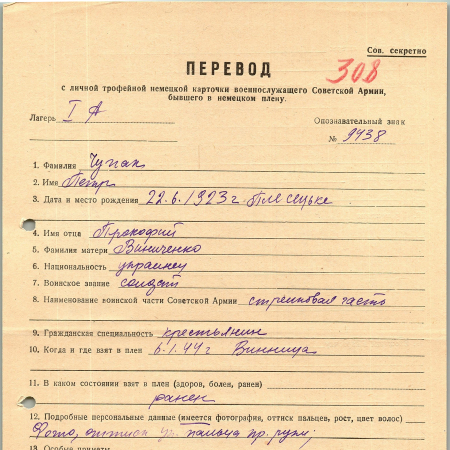 Сов. секретно
ПЕРЕВОД
308
с личной трофейной немецкой карточки военнослужащего Советской Армии,
бывшего в немецком плену.
Лагерь I А
Опознавательный знак
№ 9438
1. Фамилия Чупак
2. Имя Петр
3. Дата и место рождения 22.6.1923 г. Плесецьке
4. Имя отца Прокофий
5. Фамилия матери Виниченко
6. Национальность украинец
7. Воинское звание солдат
8. Наименование воинской части Советской Армии стрелковая часть
9. Гражданская специальность крестьянин
10. Когда и где взят в плен 6.1.44 г Винница
11. В каком состоянии взят в плен (здоров, болен, ранен)
ранен
12. Подробные персональные данные (имеется фотография, оттиск пальцев, рост, цвет волос)
Фото, оттиск ук. пальца пр. руки;
13. Особые приметы